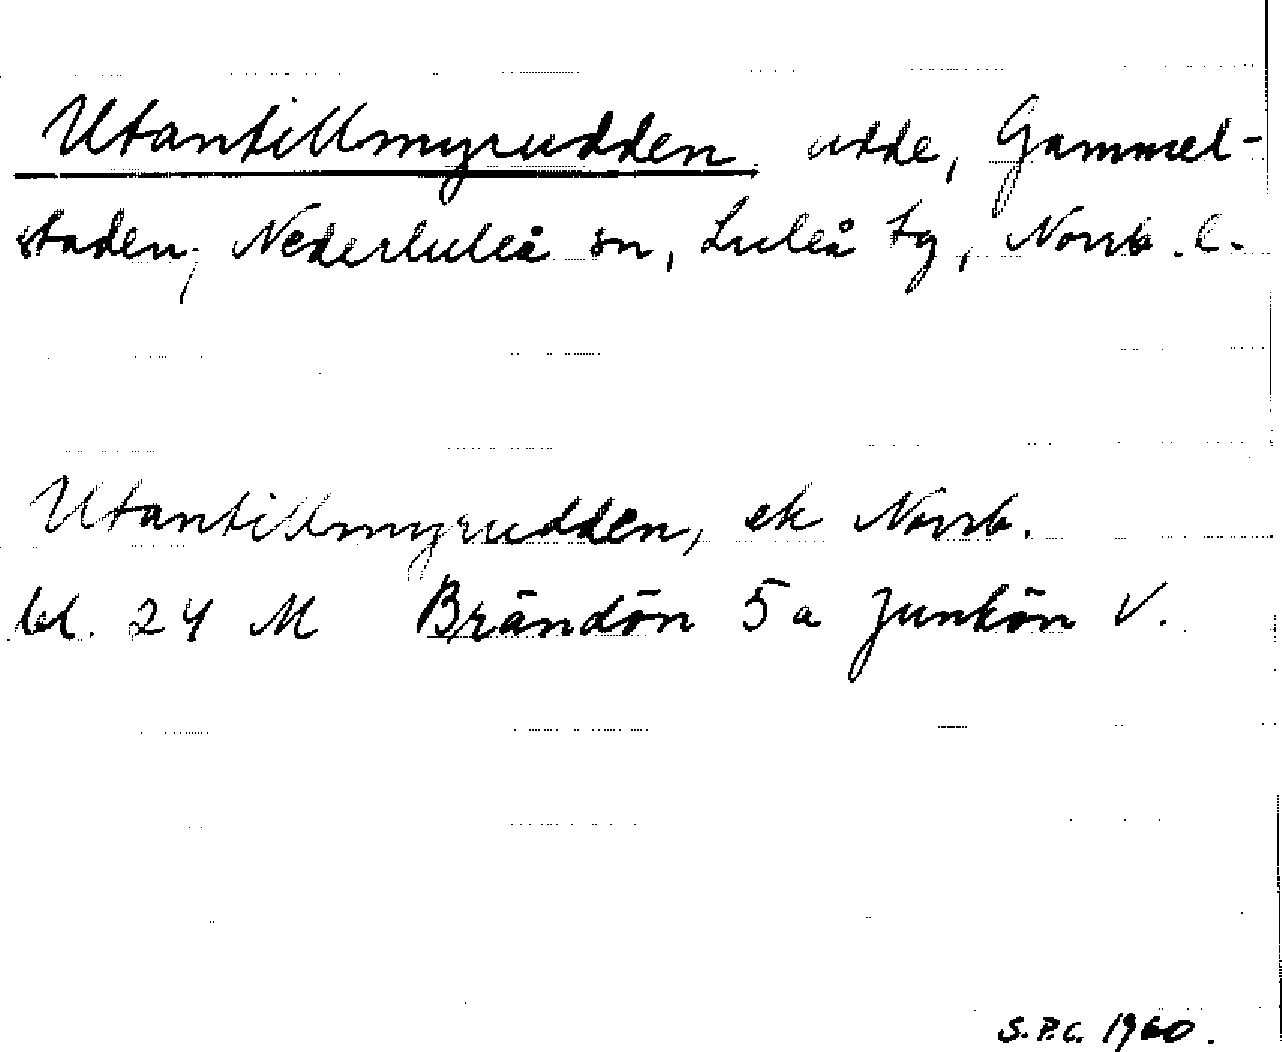 Utantillmyrudden udde, Gammel-
staden, Nederluleå sn, Luleå tg, Norrb. l.
Utantillmyrudden, ek Norrb.
bl. 24 M Brändön 5a Junkön V.
S.P.C. 1960.